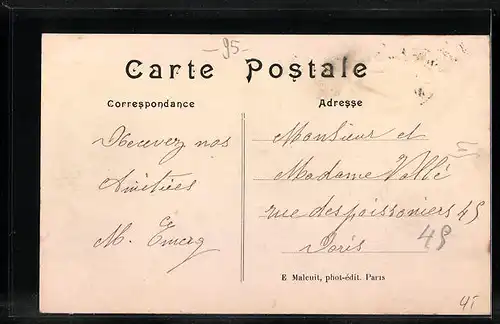 - 95 -
Carte Postale
Correspondance
Adresse
Recevez nos
Amitiées
M. Emery
Monsieur et
Madame Vallé
rue des poissoniers 45
Paris
45
E Malcuit, phot-édit. Paris
45